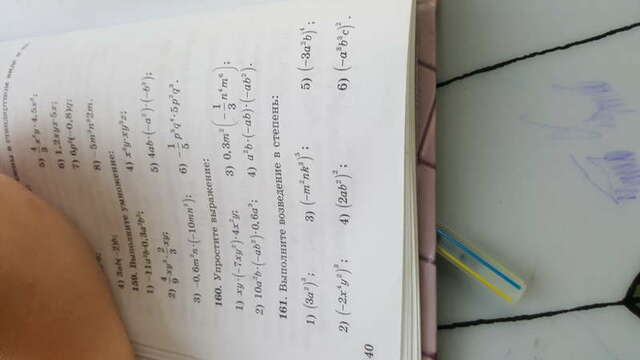 5) 4/3 x⁴y·4,5x³;
6) 1,2xyx·5x;
7) 6p²(−0,8)q;
8) −5m²n²2m.
4) 3ab(−2)b;
159. Выполните умножение:
1) −11a²b·0,3a²b²;
4) x³y·xy³z;
2) 4/9 xy³·2/3 xy;
5) 4ab·(−a²)·(−b³);
3) −0,6m²n·(−10mn²);
6) −1/5 p³q⁴·5p²q³.
160. Упростите выражение:
1) xy·(−7xy²)·4x²y;
3) 0,3m²(−1/3 n⁴m⁶);
2) 10a²b·(−ab²)·0,6a³;
4) a²b·(−ab)·(−ab²).
161. Выполните возведение в степень:
1) (3a²)³;
3) (−m²nk³)⁵;
5) (−3a³b)⁴;
2) (−2x⁴y²)³;
4) (2ab²)²;
6) (−a³b²c)².
40